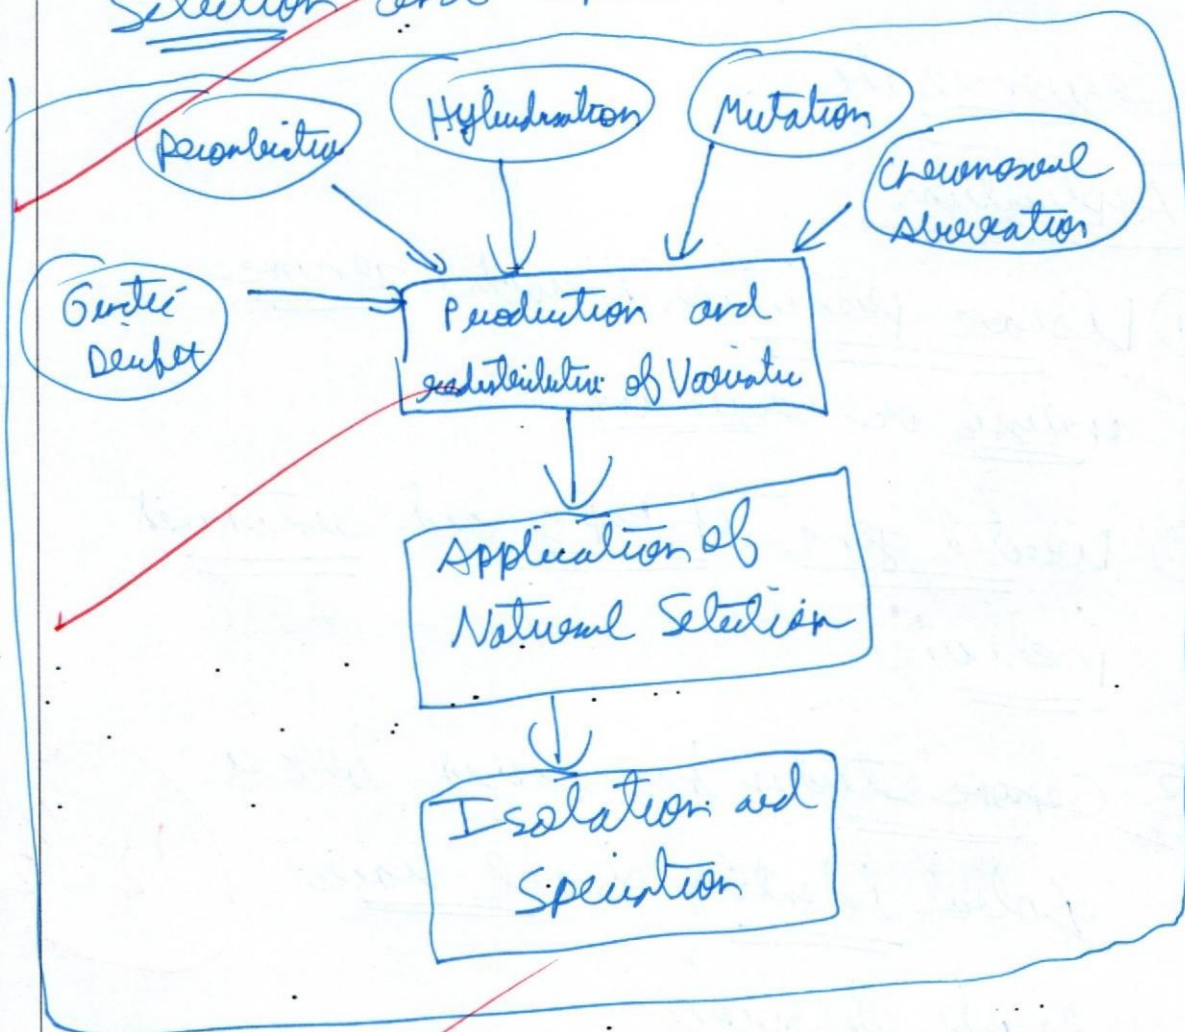 Selection and
Recombination
Hybridisation
Mutation
Chromosomal
Aberration
Genetic
Drift
Production and
redistribution of Variation
Application of
Natural Selection
Isolation and
Speciation